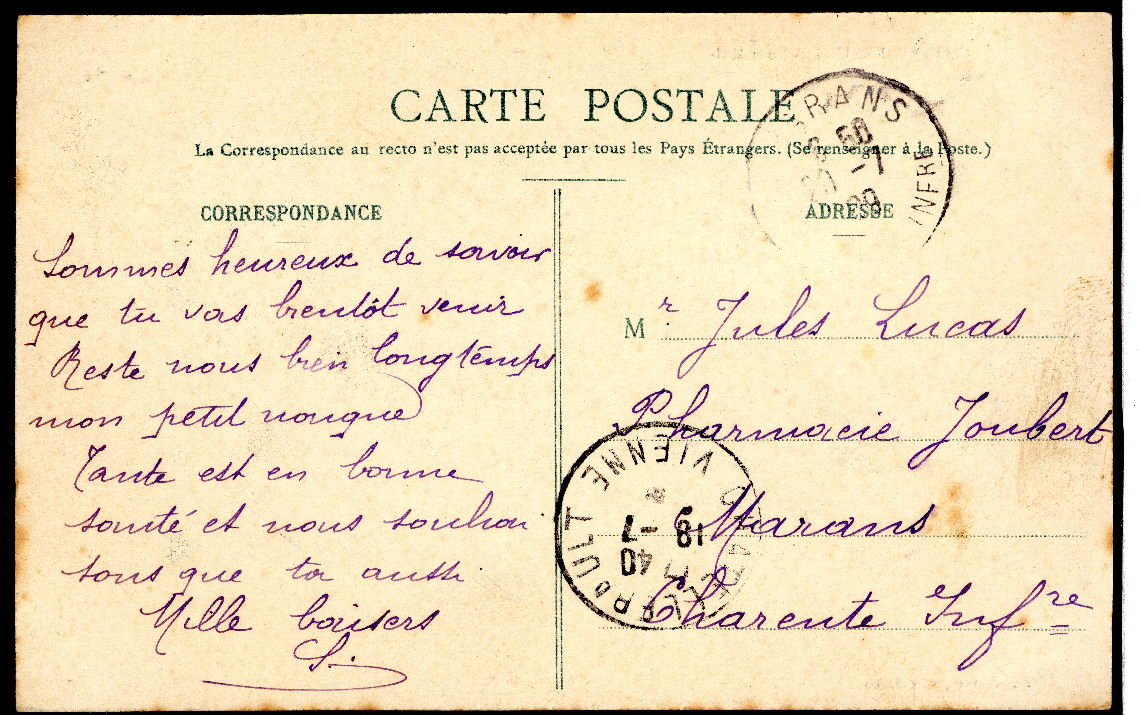 CARTE POSTALE
La Correspondance au recto n'est pas acceptée par tous les Pays Étrangers. (Se renseigner à la Poste.)
CORRESPONDANCE
Sommes heureux de savoir
que tu vas bientôt venir
Reste nous bien longtemps
mon petit
Tante est en bonne
santé et nous souhai
tons que toi aussi
Mille baisers
S.
ADRESSE
Mr Jules Lucas
Pharmacie Joubert
Marans
Charente Infre
RANS
INFRE
50
-7
09
VIENNE
18 -7
40